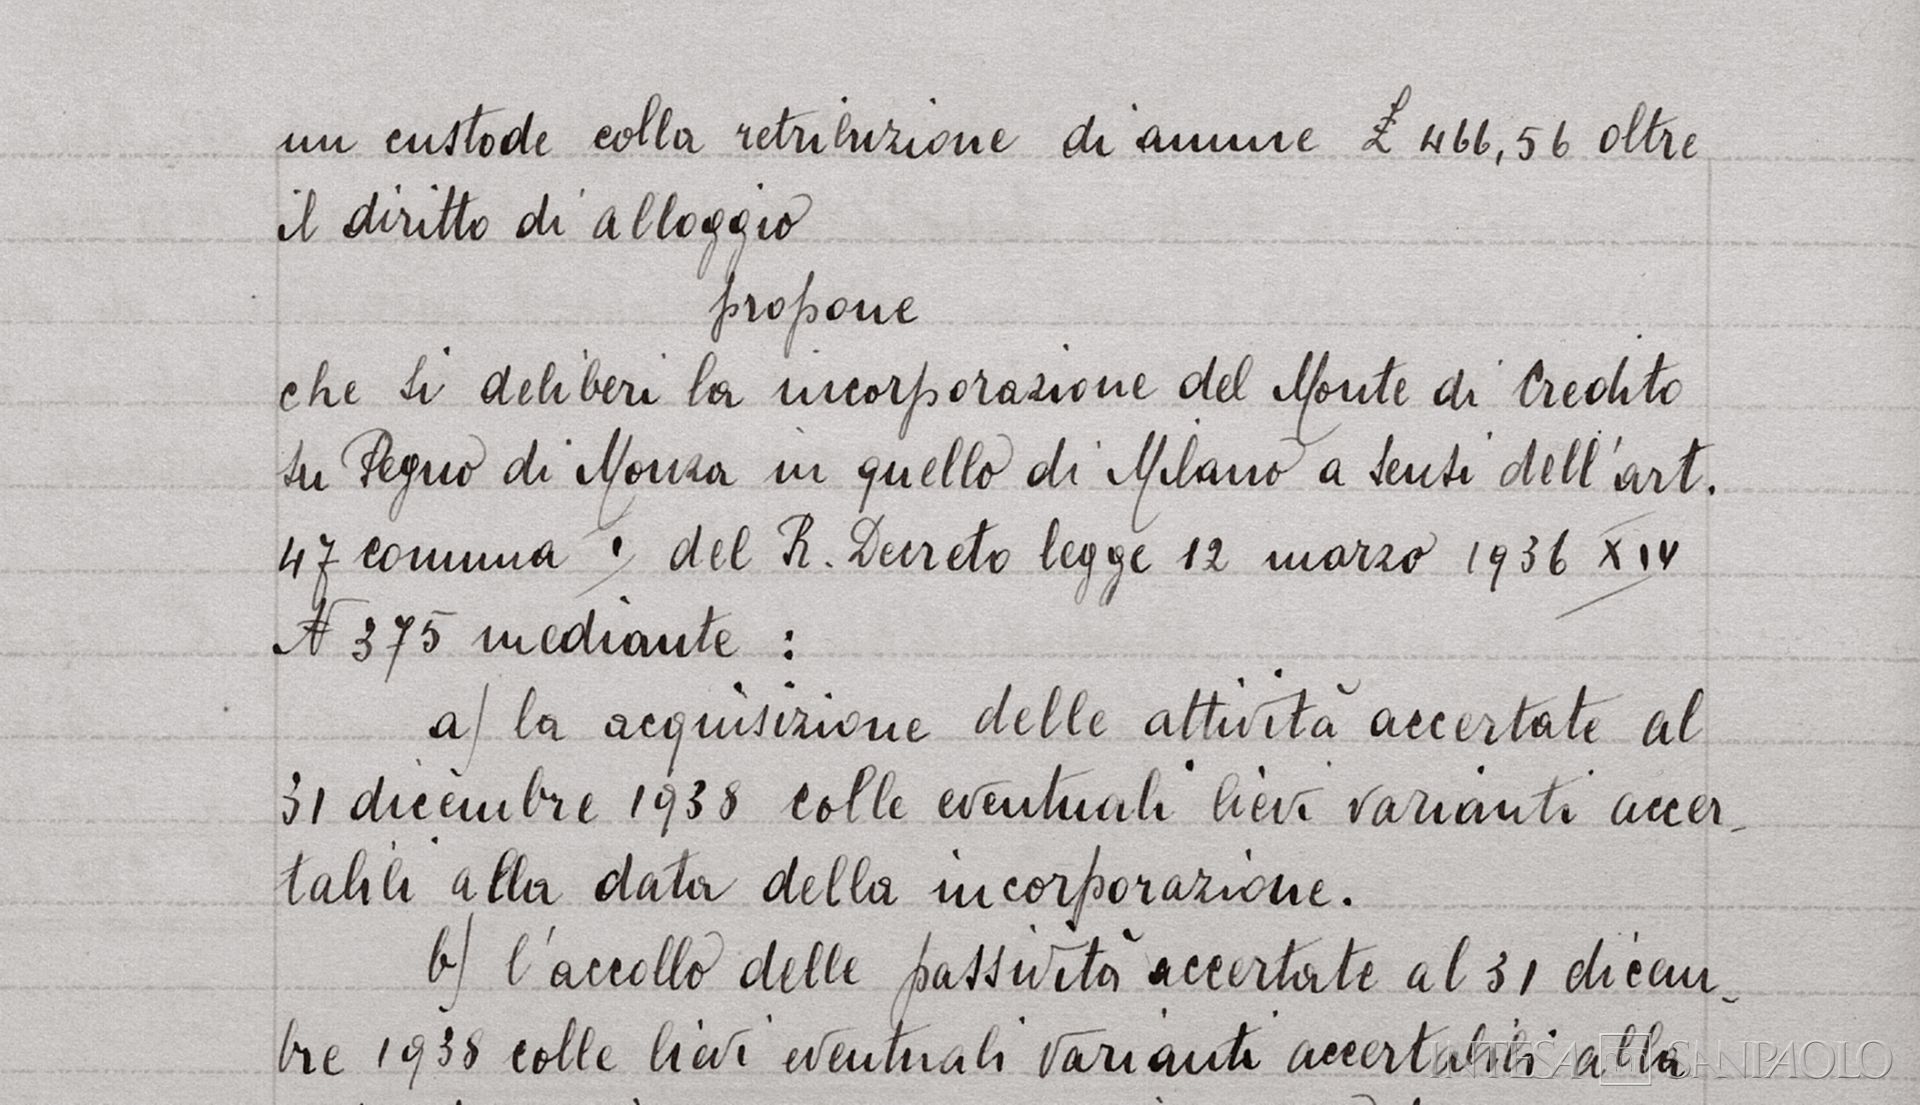 un custode colla retribuzione di annue £ 466,56 oltre
il diritto di alloggio
propone
che si deliberi la incorporazione del Monte di Credito
su Pegno di Monza in quello di Milano a sensi dell'art.
47 comma del R. Decreto legge 12 marzo 1936 XIV
N 375 mediante :
a) la acquisizione delle attività accertate al
31 dicembre 1938 colle eventuali lievi varianti accer-
tabili alla data della incorporazione.
b) l'accollo delle passività accertate al 31 dicem-
bre 1938 colle lievi eventuali varianti accertabili alla
INTESA SANPAOLO